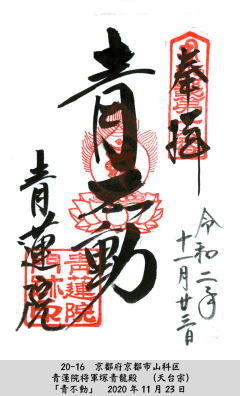 奉拝
青不動
青蓮院
令和二年
十一月廿三日
青蓮院
門跡
20-16 京都府京都市山科区
青蓮院将軍塚青龍殿 (天台宗)
「青不動」 2020年11月23日